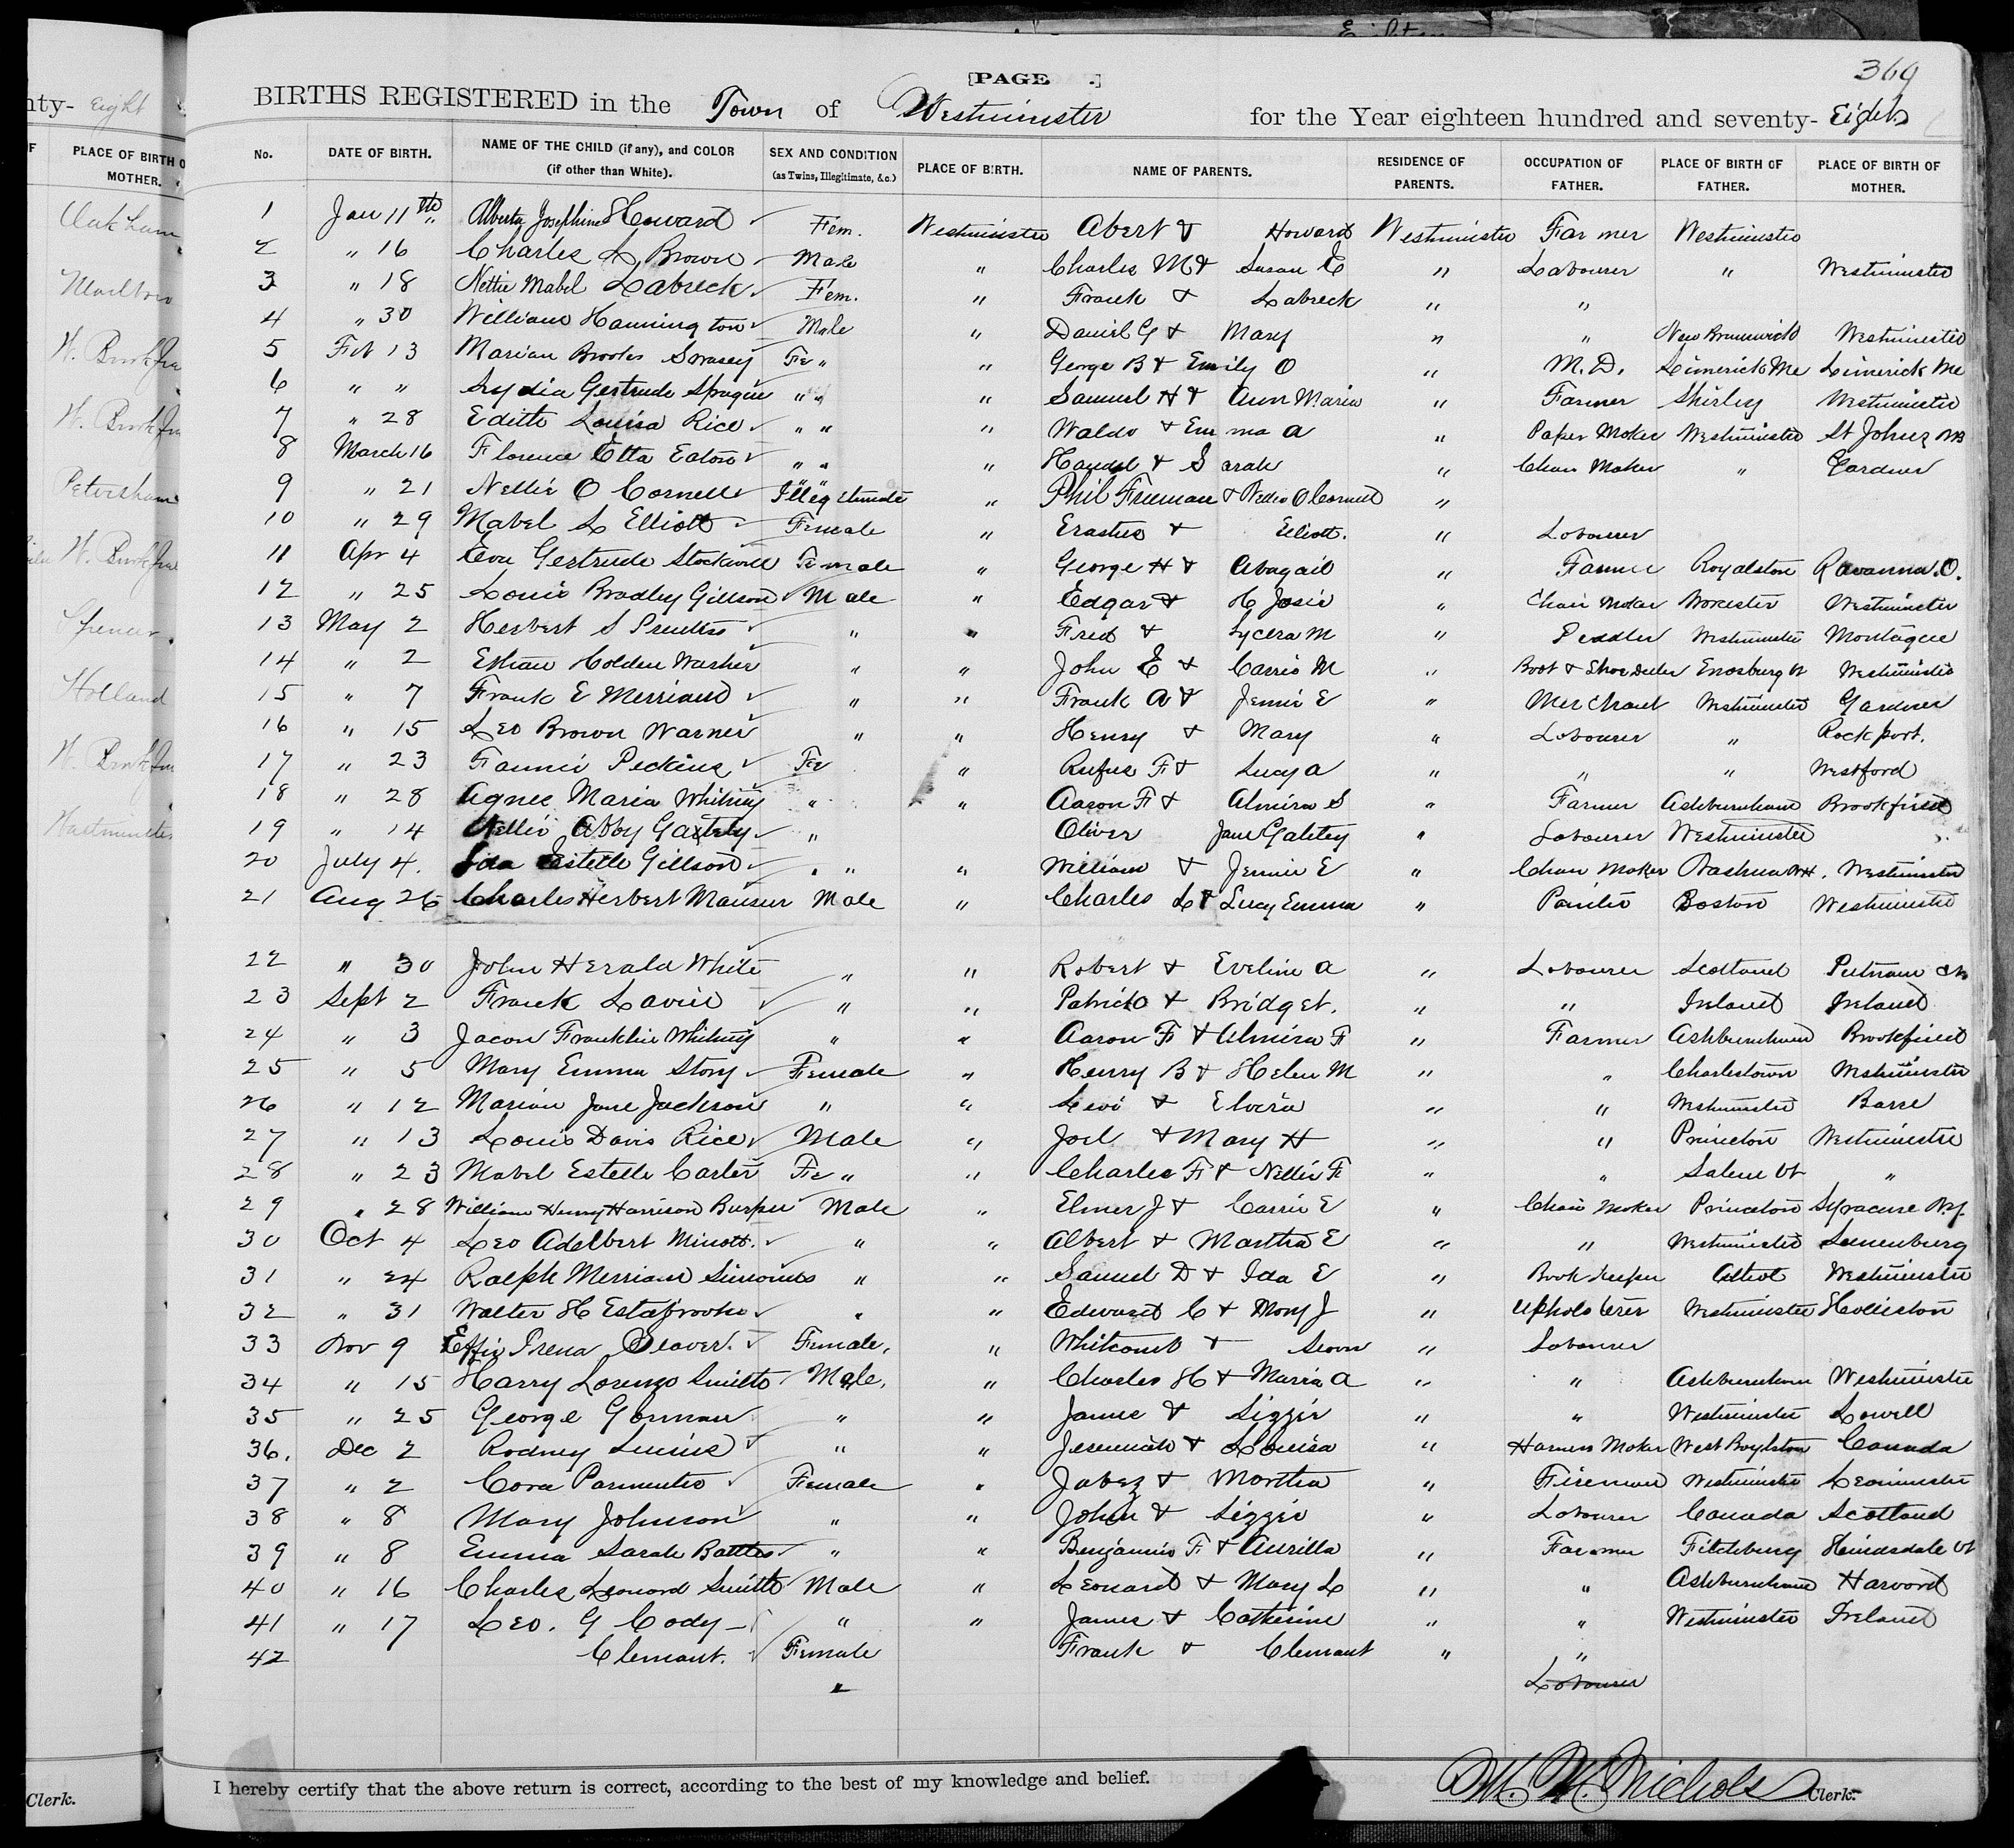 369
[PAGE .]
BIRTHS REGISTERED in the Town of Westminster for the Year eighteen hundred and seventy- Eight
No. DATE OF BIRTH. NAME OF THE CHILD (if any), and COLOR (if other than White). SEX AND CONDITION (as Twins, Illegitimate, &c.) PLACE OF BIRTH. NAME OF PARENTS. RESIDENCE OF PARENTS. OCCUPATION OF FATHER. PLACE OF BIRTH OF FATHER. PLACE OF BIRTH OF MOTHER.
1 Jan 11th Alberta Josephine Howard Fem. Westminster Abert & Howard Westminster Farmer Westminster
2 " 16 Charles L Brown Male " Charles M & Susan E " Labourer " Westminster
3 " 18 Nettie Mabel Labreck Fem. " Frank & Labreck " "
4 " 30 William Hannington Male " Daniel G & Mary " " New Brunswick Westminster
5 Feb 13 Marian Brooks Swasey Fe " " George B & Emily O " M.D. Limerick Me Limerick Me
6 " " Lydia Gertrude Sprague " " " Samuel H & Ann Maria " Farmer Shirley Westminster
7 " 28 Edith Louisa Rice " " " Waldo & Emma A " Paper Maker Westminster St Johns NB
8 March 16 Florence Etta Eaton " " " Handel & Sarah " Chair Maker " Gardner
9 " 21 Nellie O Cornell Illegitimate " Phil Freeman & Nellie O Cornell "
10 " 29 Mabel L Elliott Female " Erastus & Elliott. " Labourer
11 Apr 4 Eva Gertrude Stockwell Female " George H & Abagail " Farmer Royalston Ravanna. O.
12 " 25 Louis Bradley Gillson Male " Edgar & H Josie " Chair Maker Worcester Westminster
13 May 2 Herbert S Prentiss " " Fred & Lycera M " Peddler Westminster Montague
14 " 2 Ethan Holden " " John E & Carrie M " Boot & Shoe Dealer Enosburg Vt Westminster
15 " 7 Frank E Merriam " " Frank A & Jennie E " Merchant Westminster Gardner
16 " 15 Leo Brown Warner " " Henry & Mary " Labourer " Rockport.
17 " 23 Fannie Perkins Fe " Rufus F & Lucy A " " " Westford
18 " 28 Agnes Maria Whitney " " Aaron F & Almira S " Farmer Ashburnham Brookfield
19 " 14 Nellie Abby " Oliver Jane " Labourer Westminster
20 July 4. Ida Estelle Gillson " " " William & Jennie E " Chair Maker Nashua NH. Westminster
21 Aug 26 Charles Herbert Mansur Male " Charles L & Lucy Emma " Painter Boston Westminster
22 " 30 John Herald White " " Robert & Eveline A " Labourer Scotland Putnam
23 Sept 2 Frank " " Patrick & Bridget. " " Ireland Ireland
24 " 3 Franklin Whitney " " Aaron F & Almira F " Farmer Ashburnham Brookfield
25 " 5 Mary Emma Story Female " Henry B & Helen M " " Charlestown Westminster
26 " 12 Marion Jane Jackson " " Levi & Elvira " " Westminster Barre
27 " 13 Louis Davis Rice Male " Joel & Mary H " " Princeton Westminster
28 " 23 Mabel Estelle Carter Fe " " Charles F & Nellie F " " Salem Vt "
29 " 28 William Henry Harrison Burpee Male " Elmer J & Carrie E " Chair Maker Princeton Syracuse N.Y.
30 Oct 4 Leo Adelbert Minott. " " Albert & Martha E " " Westminster Lunenburg
31 " 24 Ralph Merriam Simonds " " Samuel D & Ida E " Book Keeper Athol Westminster
32 " 31 Walter H Estabrooks " " Edward C & Mary J " Upholsterer Westminster Holliston
33 Nov 9 Effie Irena Seaver. Female, " Whitcomb & " Labourer
34 " 15 Harry Lorenzo Smith Male, " Charles H & Maria A " " Ashburnham Westminster
35 " 25 George Gorman " " James & Lizzie " " Westminster Lowell
36. Dec 2 Rodney " " Jeremiah & Louisa " Harness Maker West Boylston Canada
37 " 2 Cora Parmenter Female " Jabez & Martha " Fireman Westminster Leominster
38 " 8 Mary Johnson " " John & Lizzie " Labourer Canada Scotland
39 " 8 Emma Sarah Battles " " Benjamin F & Aurilla " Farmer Fitchburg Hinesdale Vt
40 " 16 Charles Leonard Smith Male " Leonard & Mary L " " Ashburnham Harvard
41 " 17 Leo. G Cody " " James & Catherine " " Westminster Ireland
42 Clemant. Female Frank & Clemant " "
" Labourer
I hereby certify that the above return is correct, according to the best of my knowledge and belief.
Nichols Clerk.
nty- Eight
PLACE OF BIRTH OF MOTHER.
Oakham
W. Brookfie
W. Brookfie
Petersham
W. Brookfie
Spencer.
Holland
W. Brookfie
Clerk.